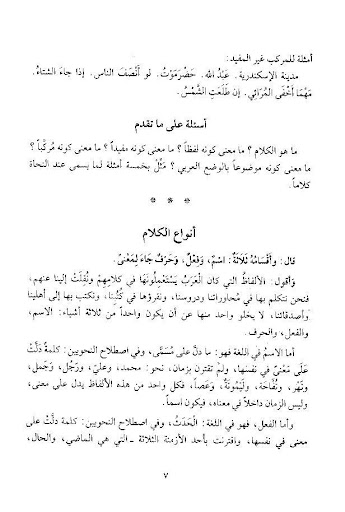 أمثلة للمركب غير المفيد:
مدينة الإسكندرية. عَبْدُ الله. حَضْرَمَوْتُ. لو أَنْصَفَ الناس. إذا جاءَ الشتاءُ.
مَهْمَا أَخْفَى المُرَائِي. إن طَلَعَتِ الشَّمْسُ.
أسئلة على ما تقدم
ما هو الكلام؟ ما معنى كونه لفظاً؟ ما معنى كونه مفيداً؟ ما معنى كونه مُركَّباً؟
ما معنى كونه موضوعاً بالوضع العربي؟ مَثِّلْ بخمسة أمثلة لما يسمى عند النحاة
كلاماً.
* * *
أنواع الكلام
قال: وأَقْسَامُهُ ثَلاَثَةٌ: اسْمٌ، وَفِعْلٌ، وَحَرْفٌ جَاءَ لِمَعْنًى.
وأقول: الألفاظُ التي كان الْعَرَبُ يَسْتَعْمِلُونَهَا في كلامِهِمْ ونُقِلَتْ إلينا عنهم،
فنحن نتكلم بها في مُحاوراتنا ودروسنا، ونقرؤها في كُتُبِنا، ونكتب بها إلى أهلينا
وأصدقائنا، لا يخلو واحد منها عن أن يكون واحداً من ثلاثة أشياء: الاسم،
والفعل، والحرف.
أما الاسمُ في اللغة فهو: ما دلَّ على مُسَمًّى، وفي اصطلاح النحويين: كلمةٌ دَلَّتْ
عَلَى مَعْنًى في نفسها، ولم تقترن بزمان، نحو: محمد، وعليّ، ورَجُل، وَجَمل،
ونَهْر، وتُفَّاحَة، ولَيْمُونَةٌ، وَعَصاً، فكل واحد من هذه الألفاظ يدل على معنى،
وليس الزمان داخلاً في معناه، فيكون اسماً.
وأما الفعل، فهو في اللغة: الْحَدَثُ، وفي اصطلاح النحويين: كلمة دلَّتْ على
معنى في نفسها، واقترنت بأحد الأزمنة الثلاثة ـ التي هي الماضي، والحال،
٧